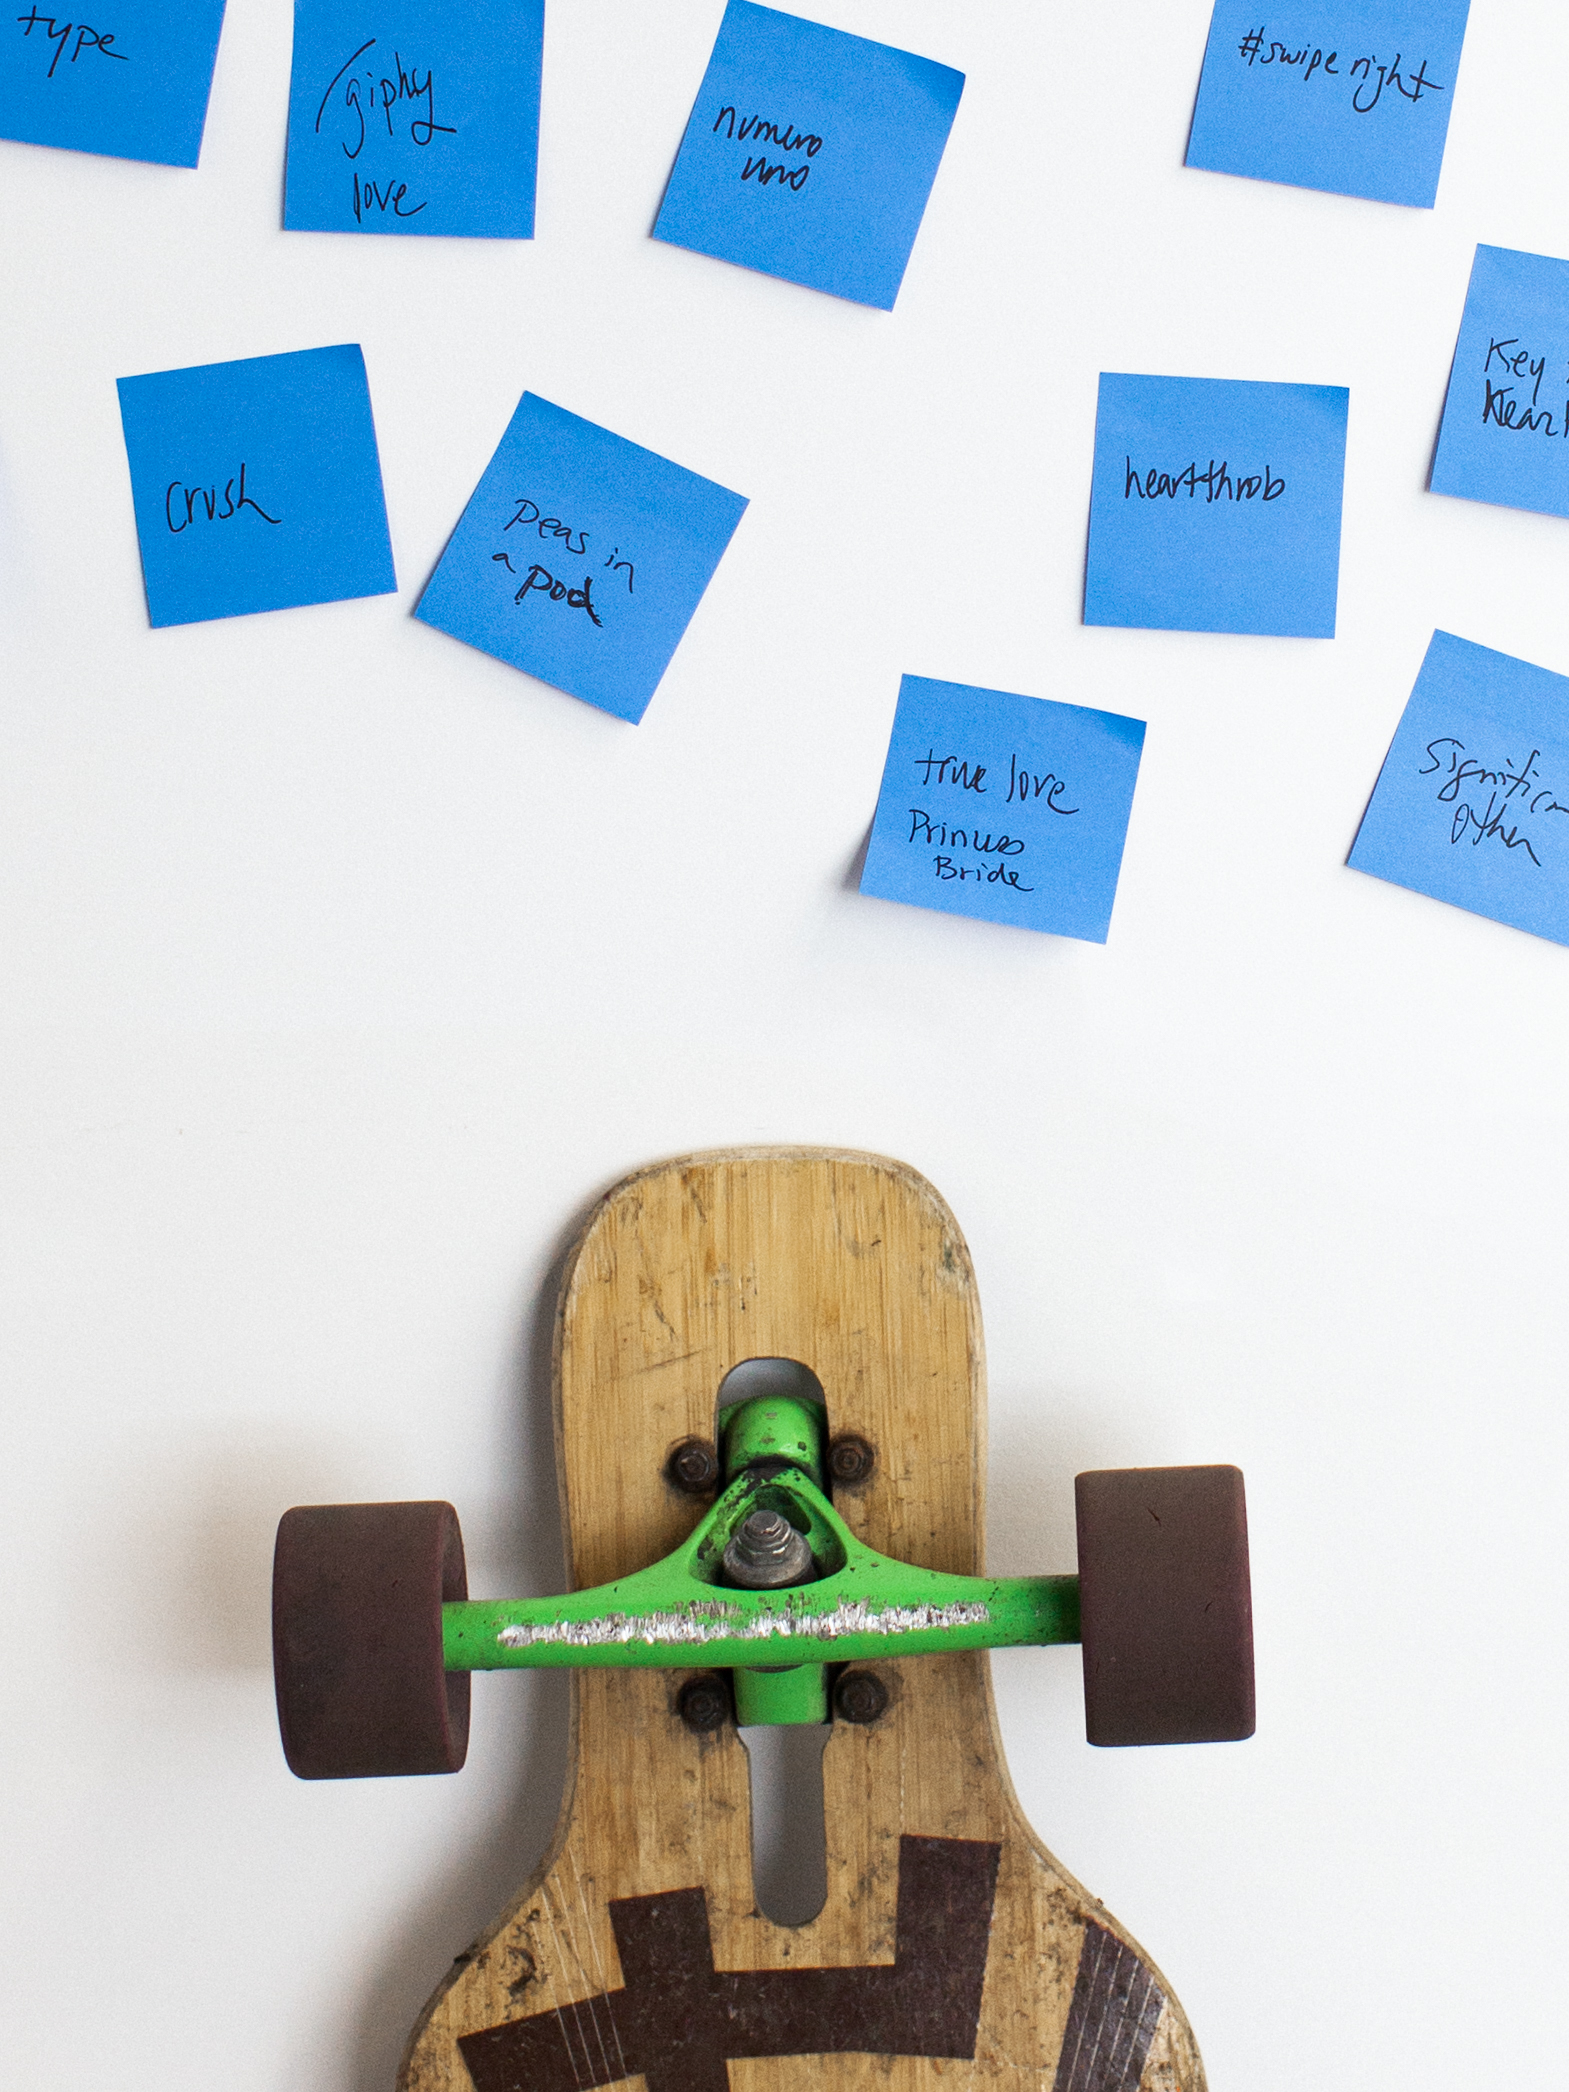 type
/giphy
love
numero
uno
#swiperight
Key
Heart
crush
peas in
a pod
heartthrob
true love
Princess
Bride
Significan
other